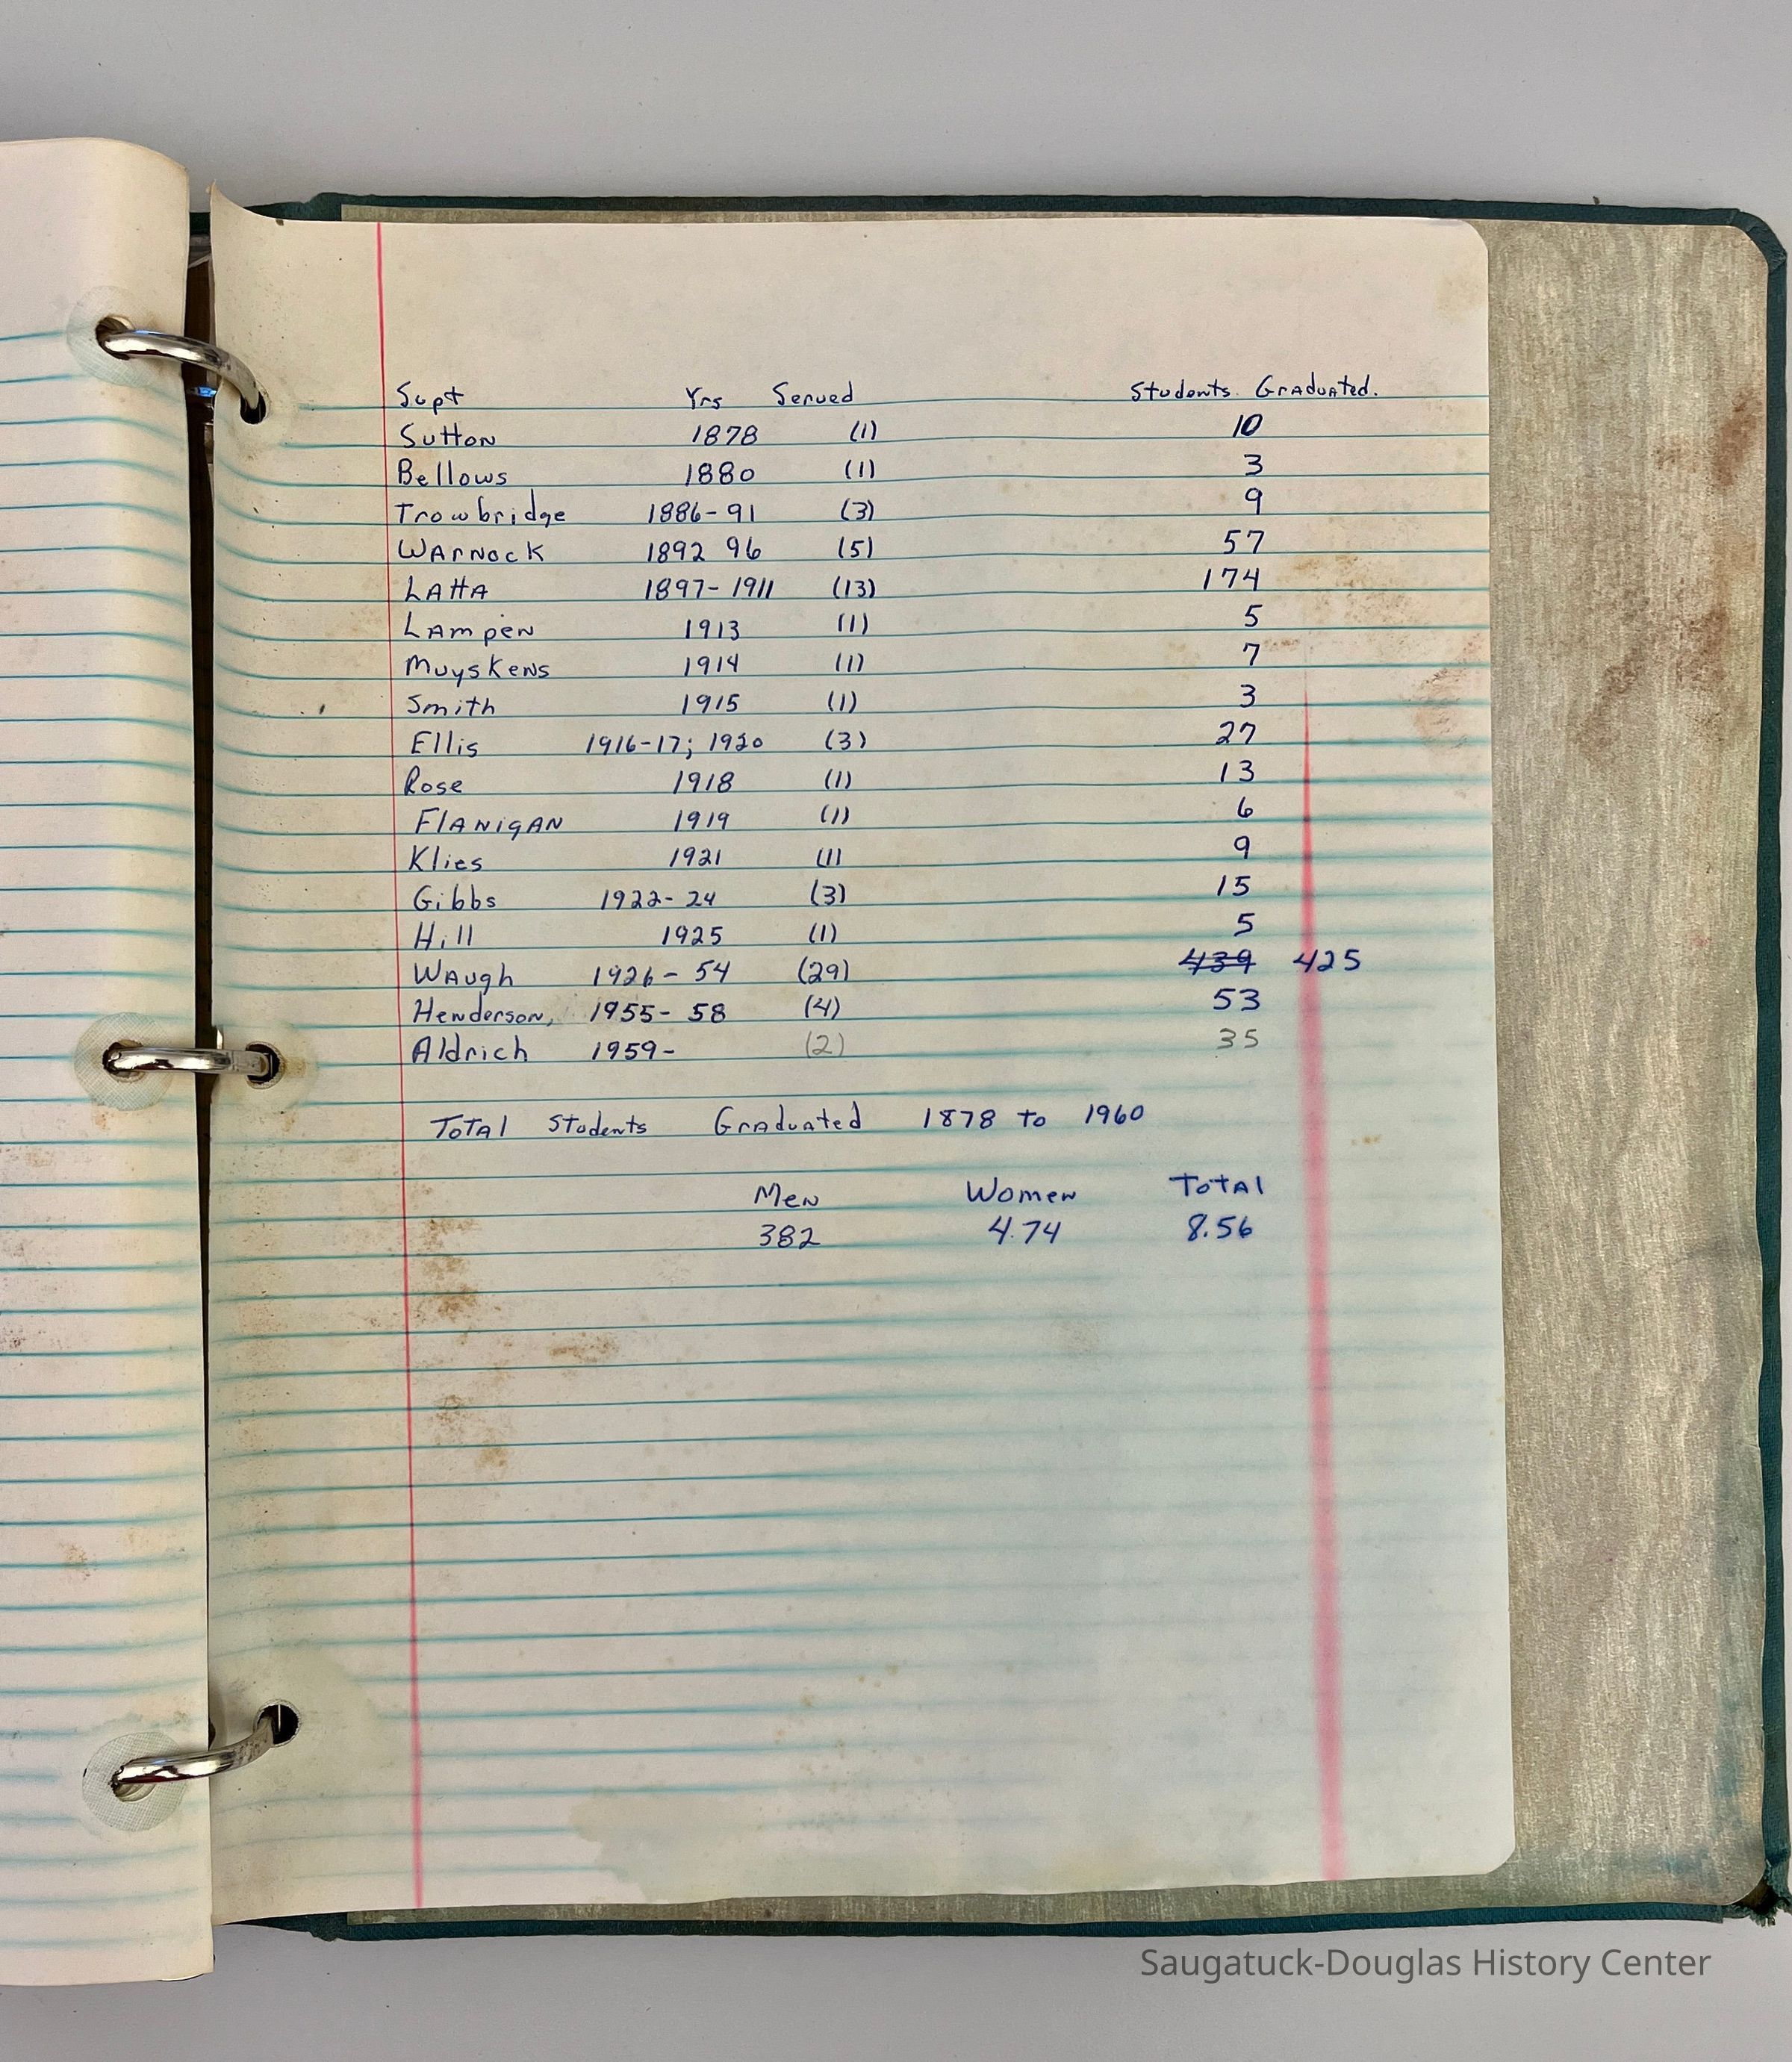 Supt Yrs Served Students Graduated.
Sutton 1878 (1) 10
Bellows 1880 (1) 3
Trowbridge 1886-91 (3) 9
Warnock 1892 96 (5) 57
Latta 1897-1911 (13) 174
Lampen 1913 (1) 5
Muyskens 1914 (1) 7
Smith 1915 (1) 3
Ellis 1916-17; 1920 (3) 27
Rose 1918 (1) 13
Flanigan 1919 (1) 6
Klies 1921 (1) 9
Gibbs 1922-24 (3) 15
Hill 1925 (1) 5
Waugh 1926-54 (29) 439 425
Henderson, 1955-58 (4) 53
Aldrich 1959- (2) 35
Total Students Graduated 1878 to 1960
Men Women Total
382 4.74 8.56
Saugatuck-Douglas History Center